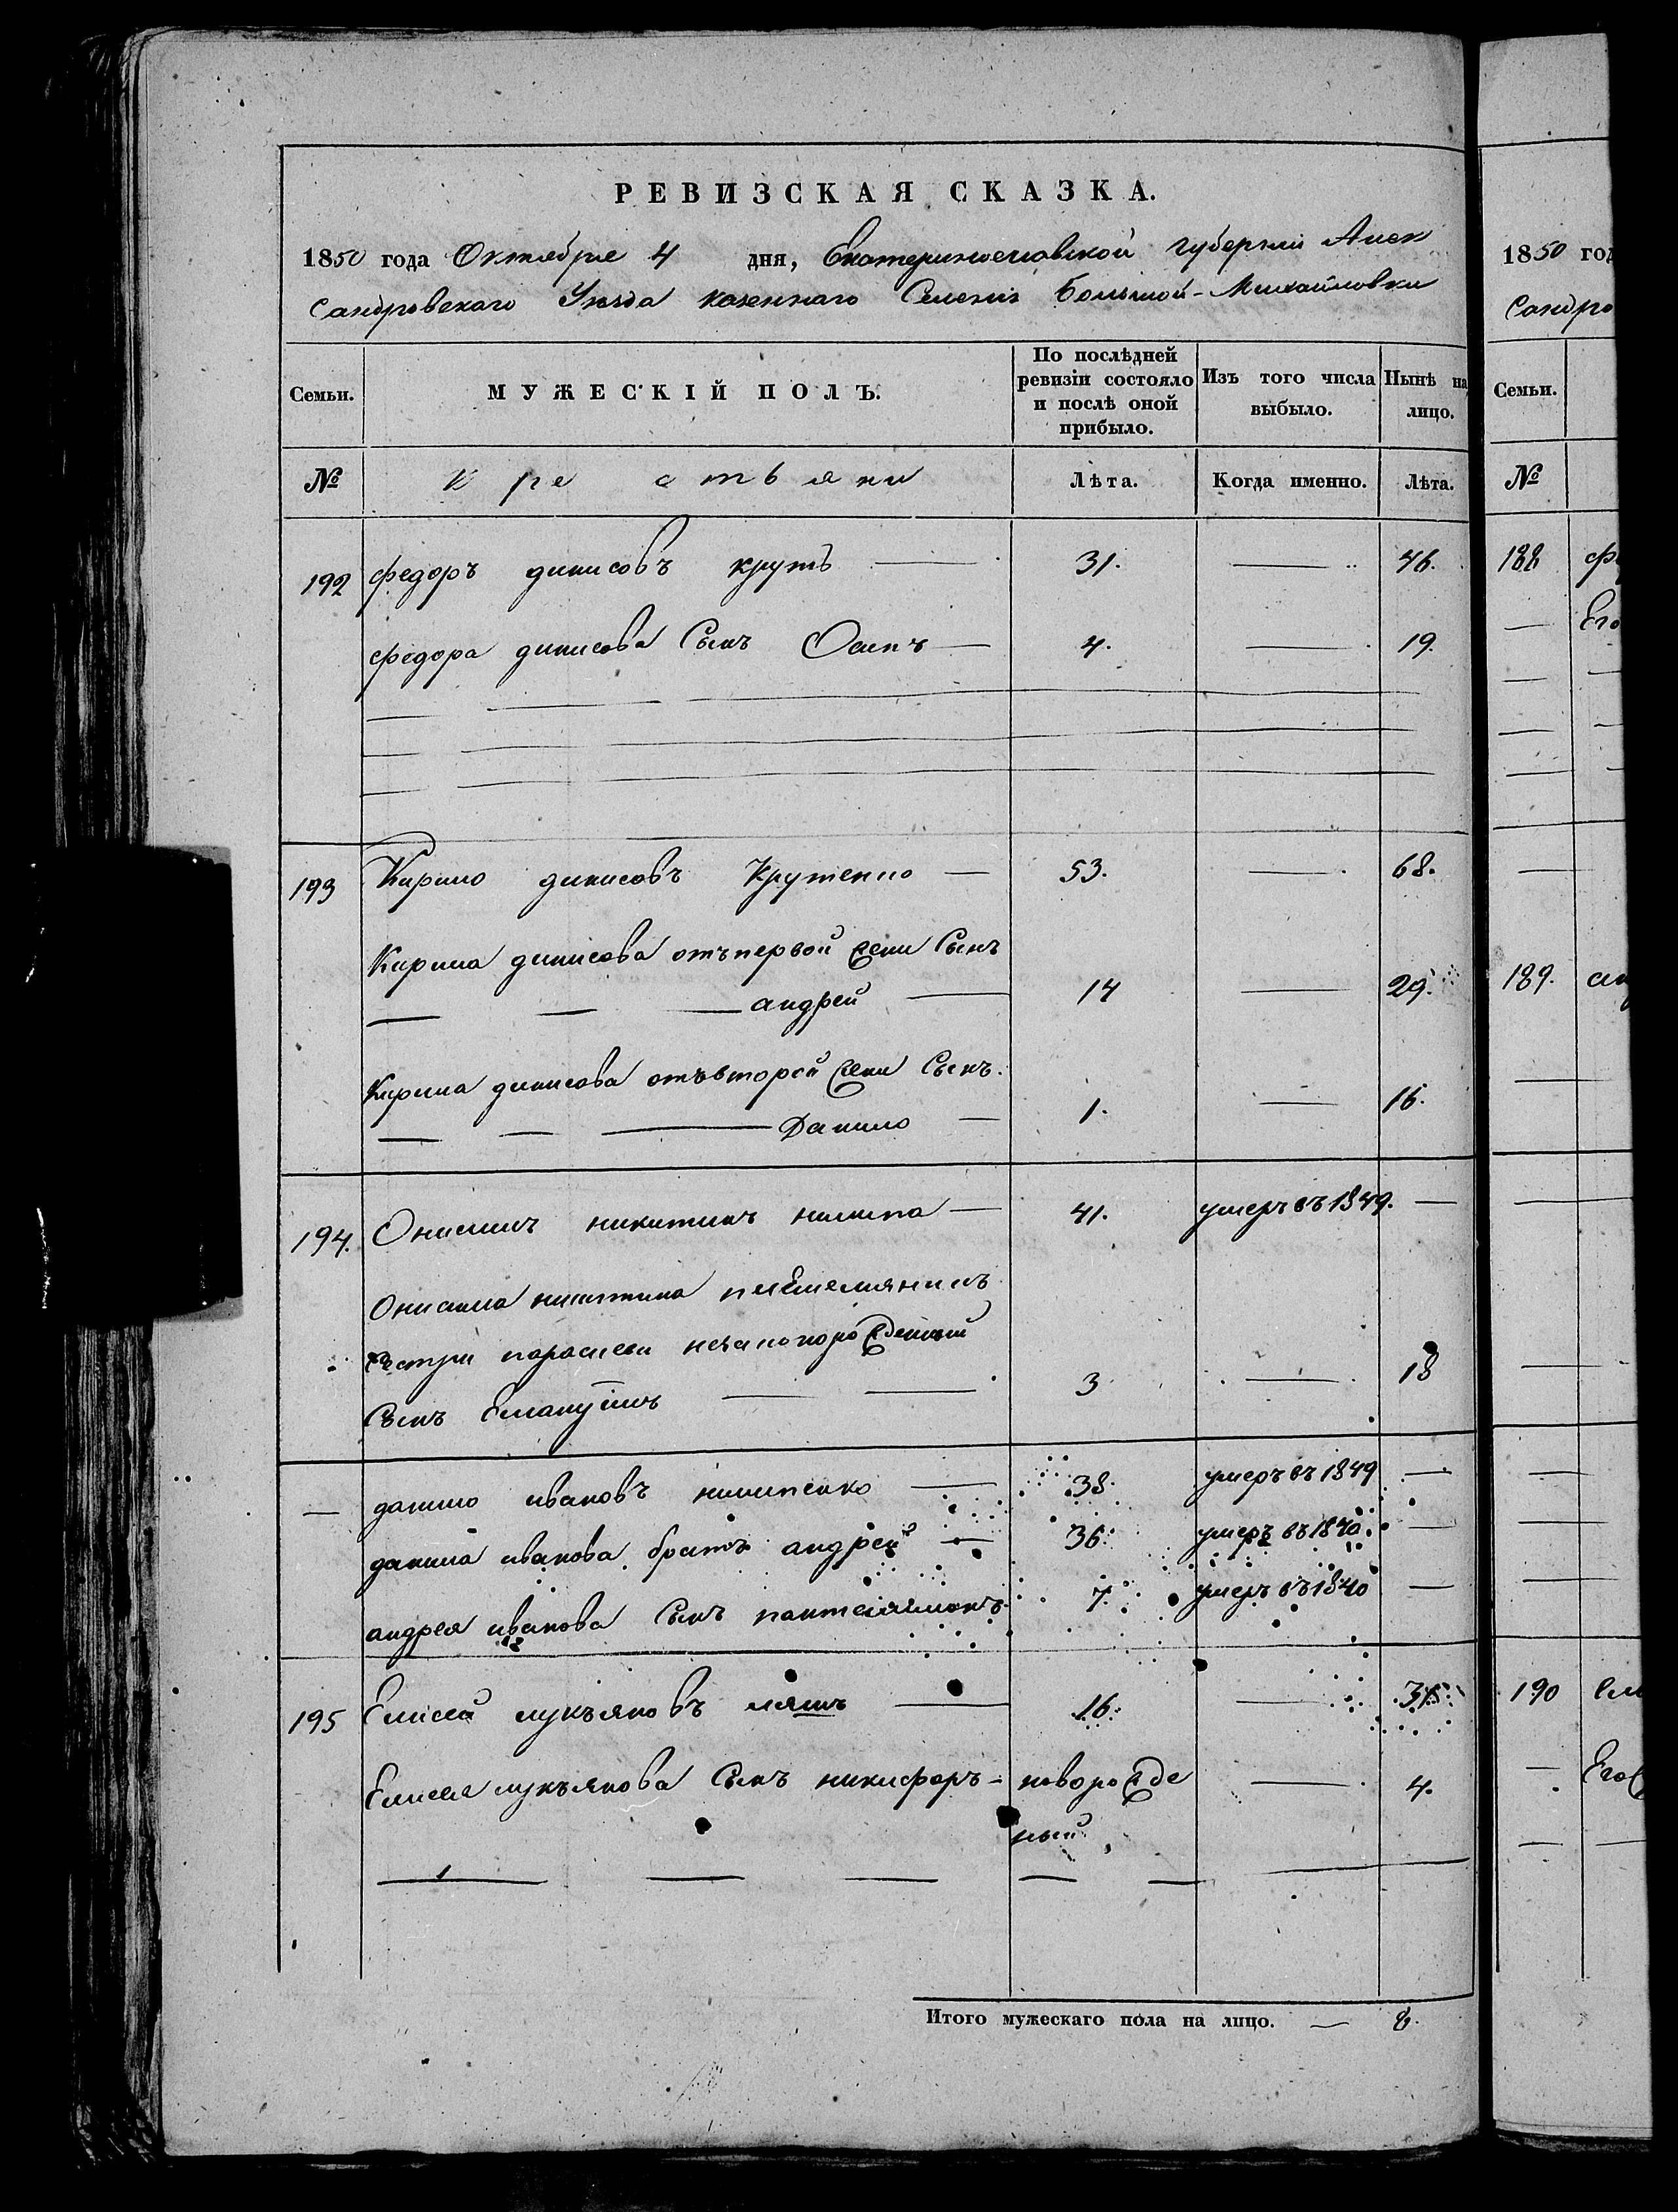 РЕВИЗСКАЯ СКАЗКА.
1850 года Октября 4 дня, Екатеринославской губернии Алек
сандровскаго Уезда казеннаго Селения Большой-Михайловки
Семьи. МУЖЕСКІЙ ПОЛЪ. По послѣдней ревизіи состояло и послѣ оной прибыло. Изъ того числа выбыло. Нынѣ на лицо.
№ крестьяни Лѣта. Когда именно. Лѣта.
192 федоръ динисовъ крутъ 31. 46.
федора динисова Сынъ Осипъ 4. 19.
193 Кирило динисовъ Крутенко 53. 68.
Кирила динисова отъ первой жени Сынъ
андрей 14 29.
Кирила динисова отъ второй жени Сынъ.
Данило 1. 16.
194. Онисимъ никитинъ 41. умеръ въ 1849.
Онисима никитина племянникъ
сестри параскеви
Сынъ 3 18
данило ивановъ 38. умеръ въ 1849
данила иванова братъ андрей 36. умеръ въ 1840.
андрея иванова Сынъ пантелиимонъ 7. умеръ въ 1840
195 Елисей лукъяновъ ляшъ 16. 31.
Елисея лукъянова Сынъ никифоръ новорожде 4.
ный
Итого мужескаго пола на лицо. 8.
1850 год
сандро
Семьи.
№
188
Его
189.
190
Его